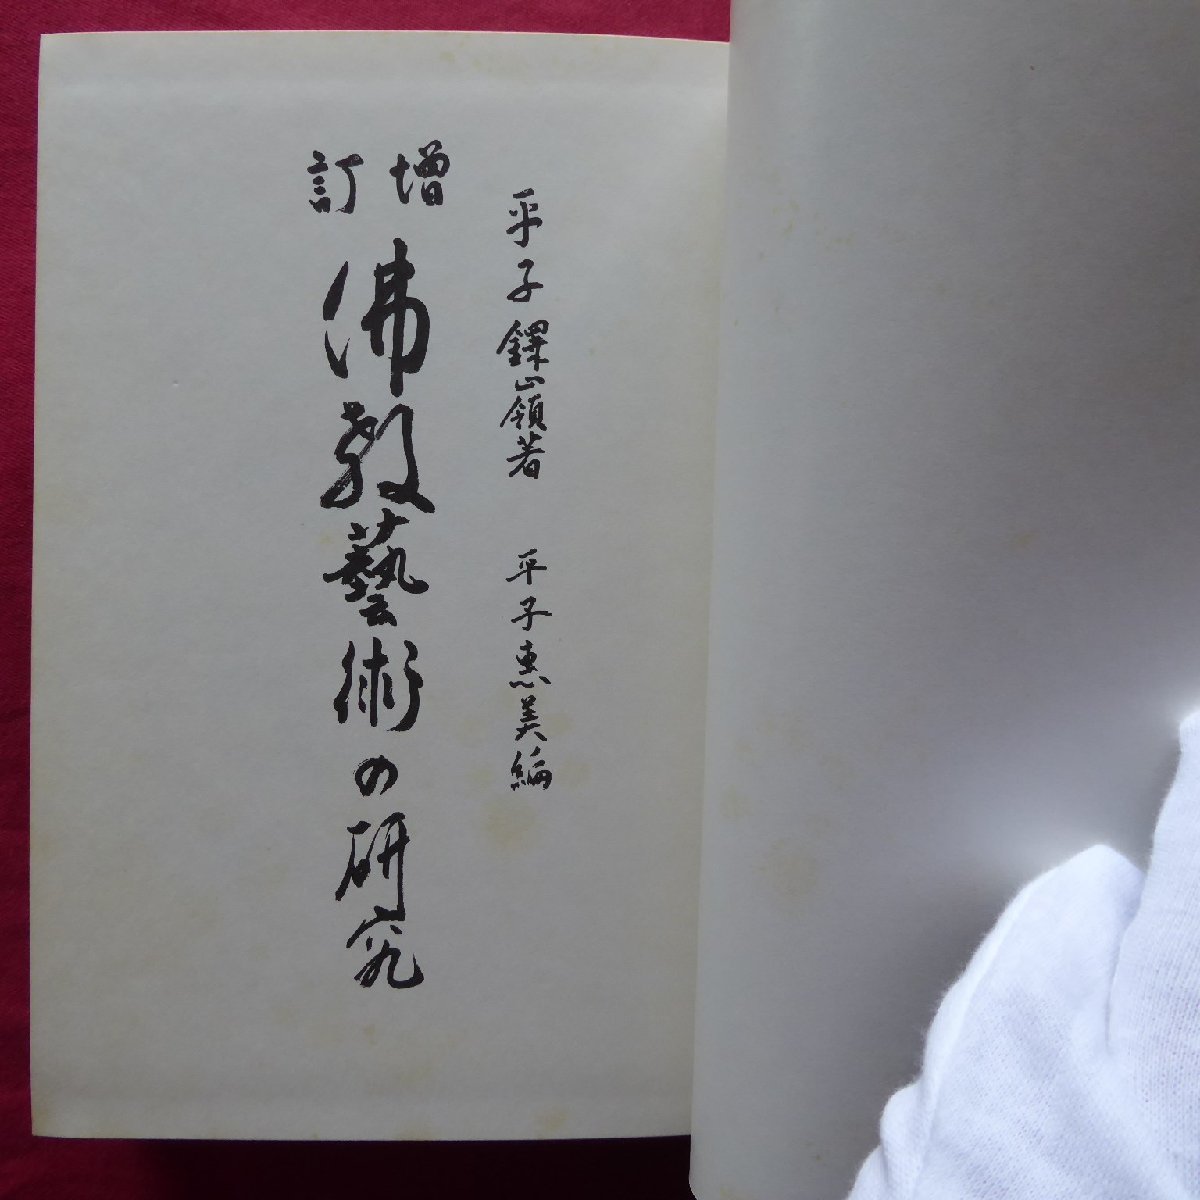 平子鐸嶺著 平子恵美編
増訂
佛教藝術の研究